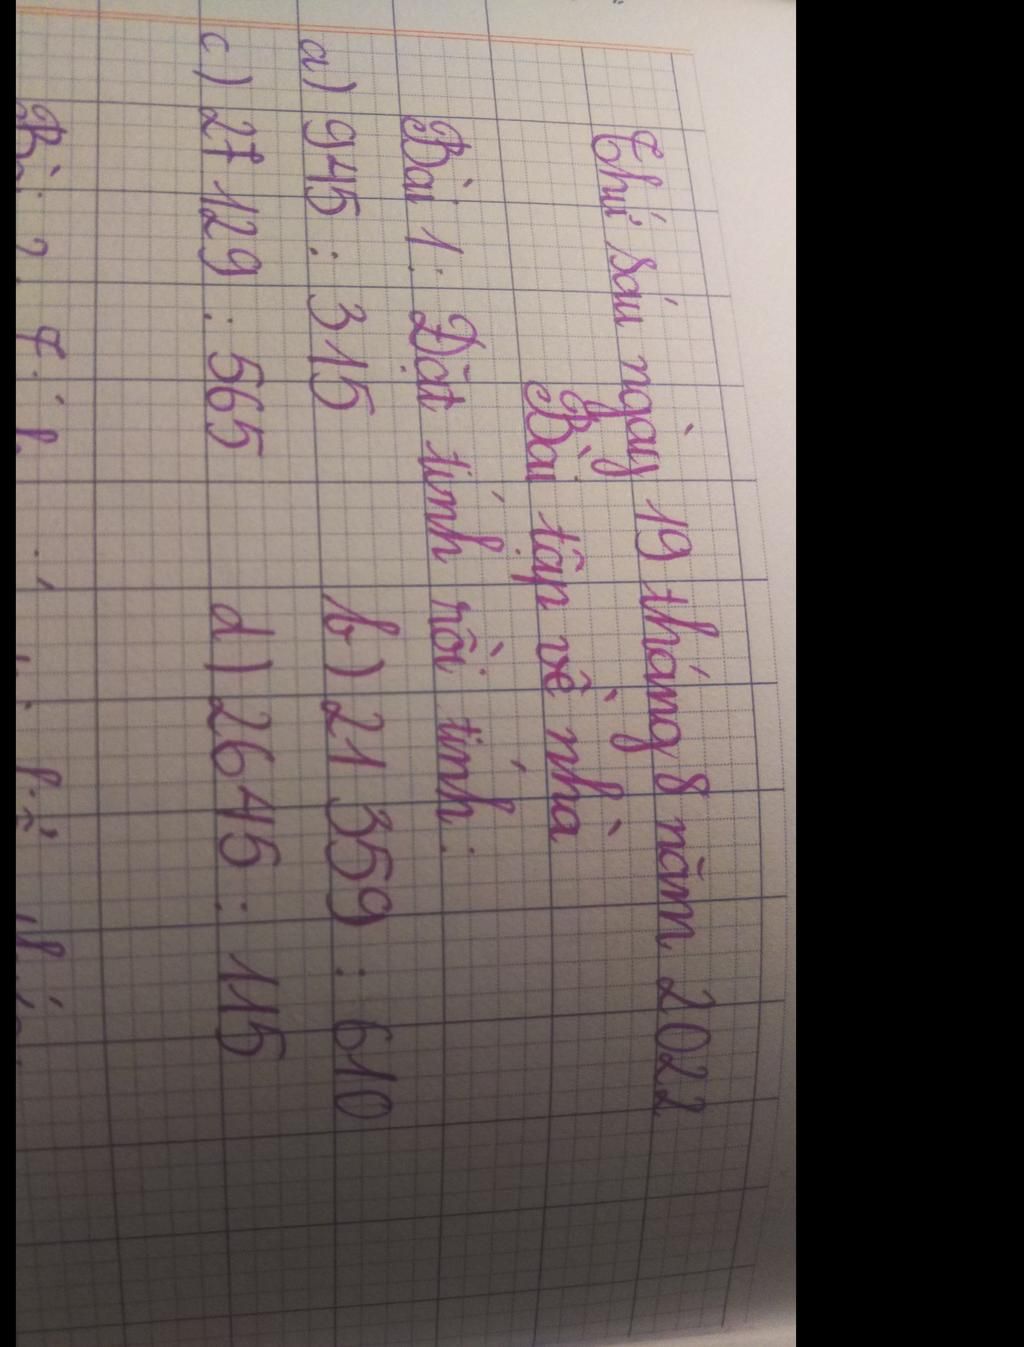 Thứ sáu ngày 19 tháng 8 năm 2022
Bài tập về nhà
Bài 1: Đặt tính rồi tính:
a) 945 : 315 b) 21 359 : 610
c) 27 129 : 565 d) 2645 : 115
Bài 2.